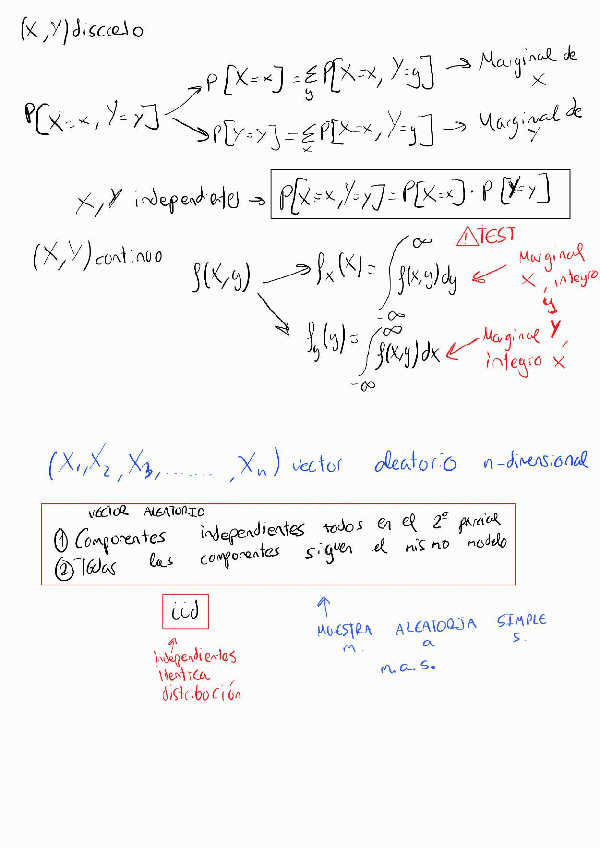 (X,Y) discreto
P[X=x] = Σ_y P[X=x, Y=y] → Marginal de X
P[X=x, Y=y]
P[Y=y] = Σ_x P[X=x, Y=y] → Marginal de Y
X, Y independientes → P[X=x, Y=y] = P[X=x] · P[Y=y]
(X,Y) continuo
⚠ TEST
f(x,y) → f_x(x) = ∫_{-∞}^{∞} f(x,y) dy ← Marginal X, integro y
f_y(y) = ∫_{-∞}^{∞} f(x,y) dx ← Marginal Y, integro x
(X1, X2, X3, ........, Xn) vector aleatorio n-dimensional
VECTOR ALEATORIO
① Componentes independientes todos en el 2º parcial
② Todas las componentes siguen el mismo modelo
iid
independientes
identica
distribución
MUESTRA ALEATORIA SIMPLE
m. a s.
m.a.s.